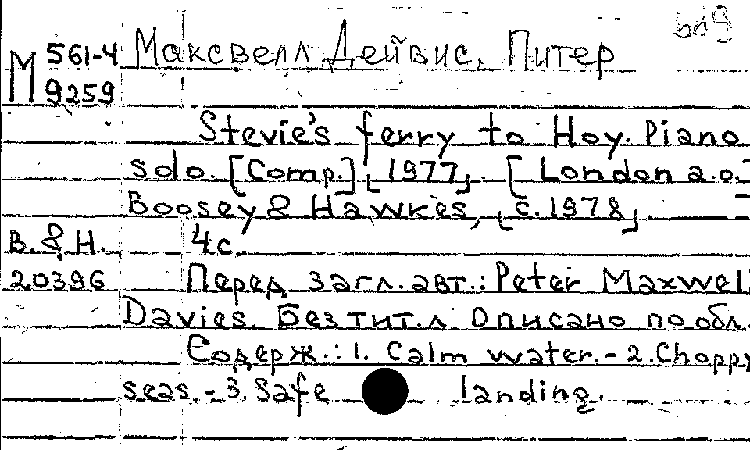 561-4 Максвелл Дейвис, Питер
М 9259
Stevie's ferry to Hoy. Piano
solo. [Comp.] 1977. [London a.o.]
Boosey & Hawkes, [c.1978].
B. & H. 4 с.
20396 Перед загл. авт.: Peter Maxwell
Davies. Без тит. л. Описано по обл.
Содерж.: 1. Calm water. - 2. Choppy
seas. - 3. Safe landing.